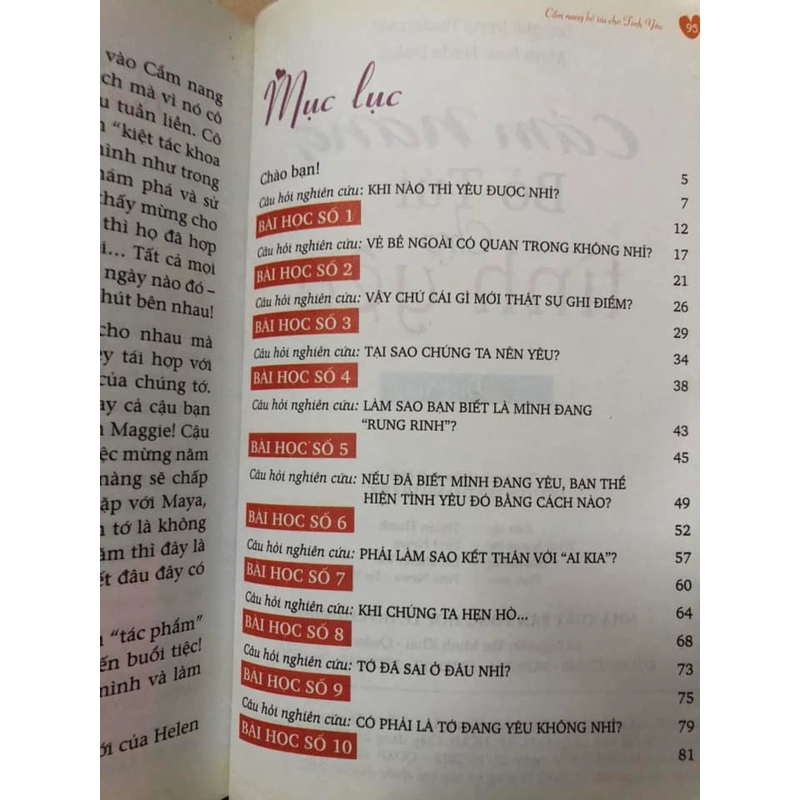 vào Cẩm nang
ch mà vì nó có
u tuần liền. Cô
n “kiệt tác khoa
mình như trong
hám phá và sử
thấy mừng cho
thì họ đã hợp
i... Tất cả mọi
ngày nào đó –
hút bên nhau!
cho nhau mà
ey tái hợp với
của chúng tớ.
ay cả cậu bạn
n Maggie! Cậu
ệc mừng năm
nàng sẽ chấp
ặp với Maya,
n tớ là không
ăm thì đây là
ết đâu đây có
n “tác phẩm”
ến buổi tiệc!
mình và làm
ới của Helen
Cẩm nang bỏ túi cho Tình Yêu 95
Mục lục
Chào bạn! 5
Câu hỏi nghiên cứu: KHI NÀO THÌ YÊU ĐƯỢC NHỈ? 7
BÀI HỌC SỐ 1 12
Câu hỏi nghiên cứu: VẺ BỀ NGOÀI CÓ QUAN TRỌNG KHÔNG NHỈ? 17
BÀI HỌC SỐ 2 21
Câu hỏi nghiên cứu: VẬY CHỨ CÁI GÌ MỚI THẬT SỰ GHI ĐIỂM? 26
BÀI HỌC SỐ 3 29
Câu hỏi nghiên cứu: TẠI SAO CHÚNG TA NÊN YÊU? 34
BÀI HỌC SỐ 4 38
Câu hỏi nghiên cứu: LÀM SAO BẠN BIẾT LÀ MÌNH ĐANG
“RUNG RINH”? 43
BÀI HỌC SỐ 5 45
Câu hỏi nghiên cứu: NẾU ĐÃ BIẾT MÌNH ĐANG YÊU, BẠN THỂ
HIỆN TÌNH YÊU ĐÓ BẰNG CÁCH NÀO? 49
BÀI HỌC SỐ 6 52
Câu hỏi nghiên cứu: PHẢI LÀM SAO KẾT THÂN VỚI “AI KIA”? 57
BÀI HỌC SỐ 7 60
Câu hỏi nghiên cứu: KHI CHÚNG TA HẸN HÒ... 64
BÀI HỌC SỐ 8 68
Câu hỏi nghiên cứu: TỚ ĐÃ SAI Ở ĐÂU NHỈ? 73
BÀI HỌC SỐ 9 75
Câu hỏi nghiên cứu: CÓ PHẢI LÀ TỚ ĐANG YÊU KHÔNG NHỈ? 79
BÀI HỌC SỐ 10 81